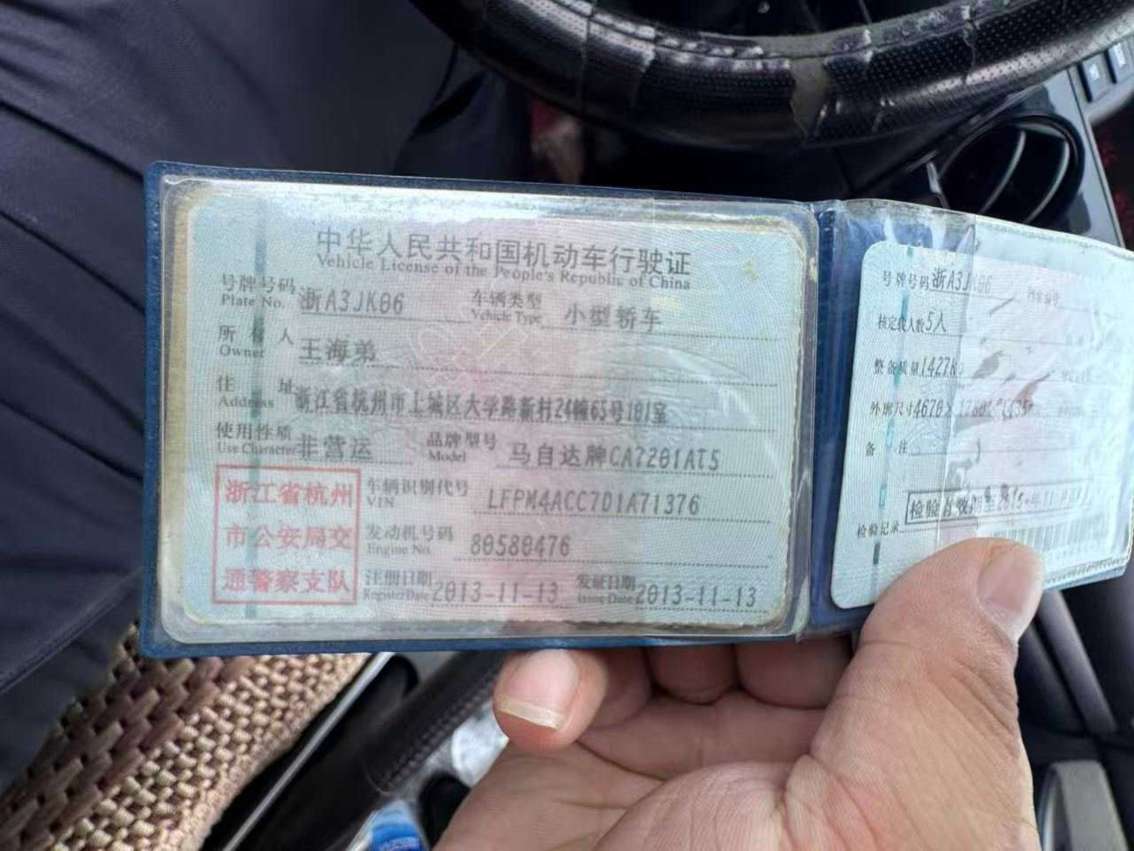 中华人民共和国机动车行驶证
Vehicle License of the People's Republic of China
号牌号码 浙A3JK06 车辆类型 小型轿车
Plate No. Vehicle Type
所有人 王海弟
Owner
住址 浙江省杭州市上城区大学路新村24幢63号101室
Address
使用性质 非营运 品牌型号 马自达牌CA7201AT5
Use Character Model
浙江省杭州
市公安局交
通警察支队
车辆识别代号 LFPM4ACC7D1A71376
VIN
发动机号码 80580476
Engine No.
注册日期 2013-11-13 发证日期 2013-11-13
Register Date Issue Date
号牌号码 浙A3JK06
核定载人数 5人
整备质量 1427k
外廓尺寸 4670×
备注
检验记录